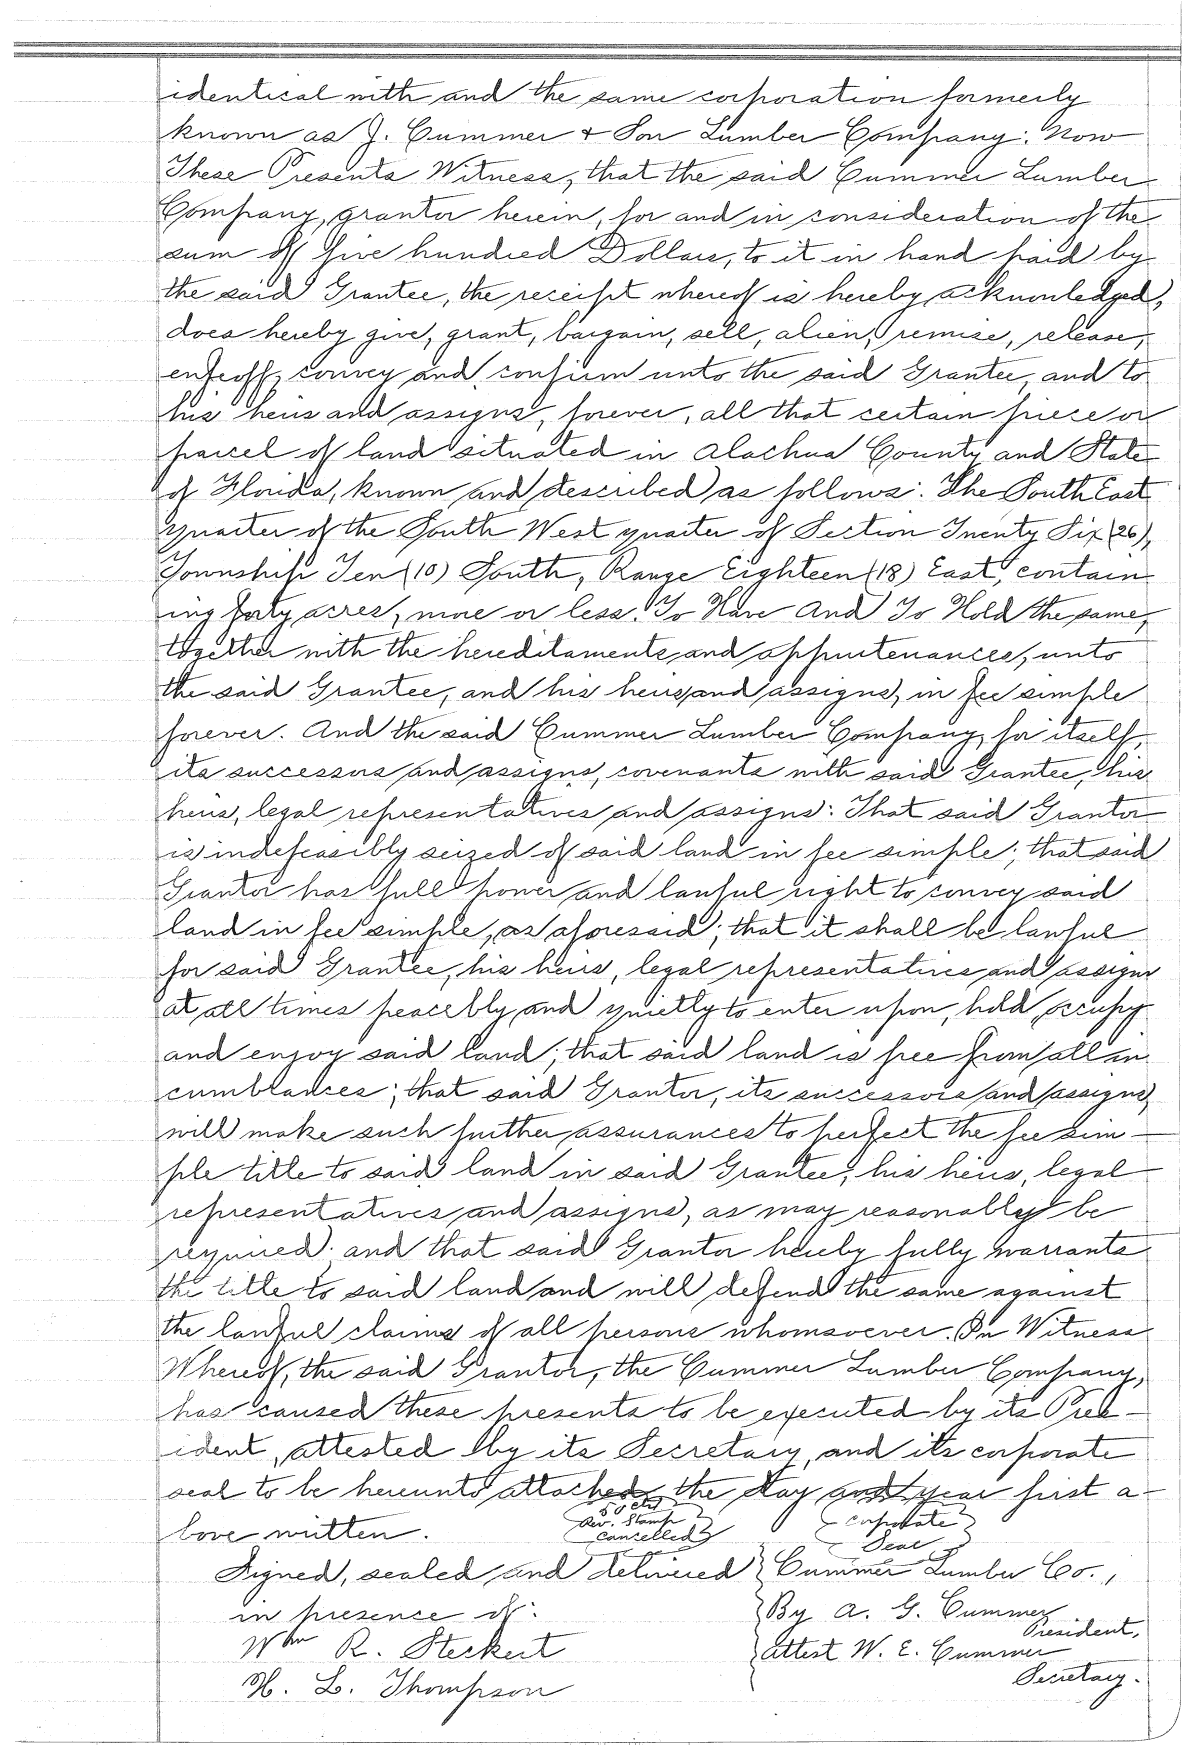 identical with and the same corporation formerly
known as J. Cummer + Son Lumber Company: Now
These Presents Witness, that the said Cummer Lumber
Company, grantor herein, for and in consideration of the
sum of five hundred Dollars, to it in hand paid by
the said Grantee, the receipt whereof is hereby acknowledged,
does hereby give, grant, bargain, sell, alien, remise, release,
enfeoff, convey and confirm unto the said Grantee, and to
his heirs and assigns, forever, all that certain piece or
parcel of land situated in Alachua County and State
of Florida, known and described as follows: The South East
quarter of the South West quarter of Section Twenty Six (26),
Township Ten (10) South, Range Eighteen (18) East, contain
ing forty acres, more or less. To Have And To Hold the same,
together with the hereditaments and appurtenances, unto
the said Grantee, and his heirs and assigns, in fee simple
forever. And the said Cummer Lumber Company, for itself,
its successors and assigns, covenants with said Grantee, his
heirs, legal representatives and assigns: That said Grantor
is indefeasibly seized of said land in fee simple; that said
Grantor has full power and lawful right to convey said
land in fee simple, as aforesaid; that it shall be lawful
for said Grantee, his heirs, legal representatives and assigns
at all times peacebly and quietly to enter upon, hold, occupy
and enjoy said land; that said land is free from all in
cumbrances; that said Grantor, its successors and assigns,
will make such further assurances to perfect the fee sim-
ple title to said land in said Grantee, his heirs, legal
representatives and assigns, as may reasonably be
required; and that said Grantor hereby fully warrants
the title to said land and will defend the same against
the lawful claims of all persons whomsoever. In Witness
Whereof, the said Grantor, the Cummer Lumber Company,
has caused these presents to be executed by its Pres-
ident, attested by its Secretary, and its corporate
seal to be hereunto attached, the day and year first a-
bove written.
50 cts
Rev. Stamp
Cancelled
Corporate
Seal
Signed, sealed and delivered
in presence of:
Wm R. Steckert
H. L. Thompson
Cummer Lumber Co.,
By A. G. Cummer
President,
Attest W. E. Cummer
Secretary.